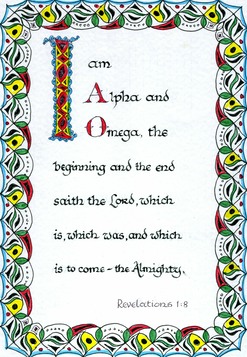 I am
Alpha and
Omega, the
beginning and the end
saith the Lord, which
is, which was, and which
is to come - the Almighty.
Revelations 1:8